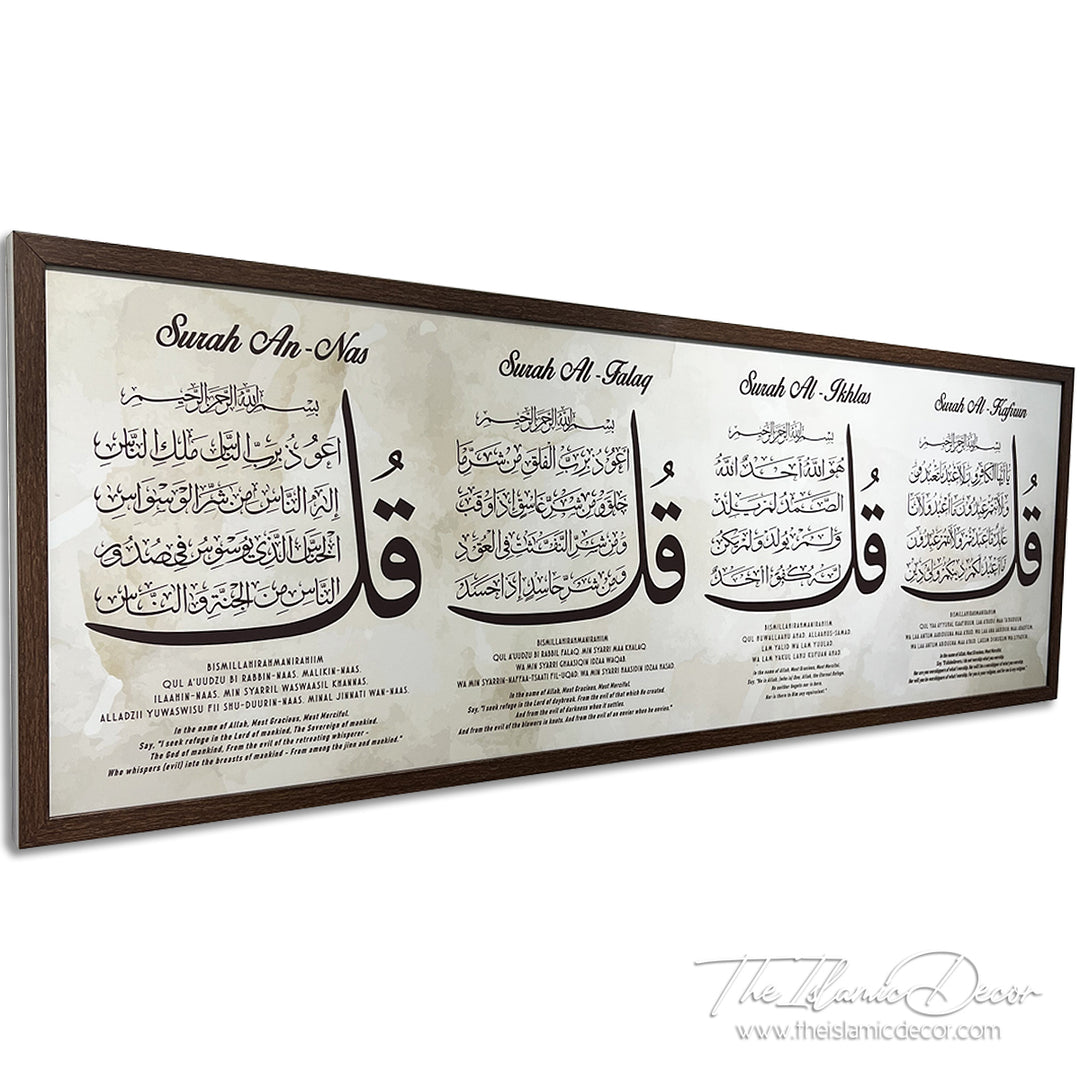 Surah An-Nas
بِسْمِ اللَّهِ الرَّحْمَنِ الرَّحِيمِ
قُلْ
اَعُوْذُ بِرَبِّ النَّاسِ مَلِكِ النَّاسِ
إِلَهِ النَّاسِ مِنْ شَرِّ الْوَسْوَاسِ
الْخَنَّاسِ الَّذِي يُوَسْوِسُ فِي صُدُورِ
النَّاسِ مِنَ الْجِنَّةِ وَالنَّاسِ
BISMILLAHIRAHMANIRAHIIM
QUL A'UUDZU BI RABBIN-NAAS. MALIKIN-NAAS.
ILAAHIN-NAAS. MIN SYARRIL WASWAASIL KHANNAS.
ALLADZII YUWASWISU FII SHU-DUURIN-NAAS. MINAL JINNATI WAN-NAAS.
In the name of Allah, Most Gracious, Most Merciful.
Say, "I seek refuge in the Lord of mankind, The Sovereign of mankind.
The God of mankind, From the evil of the retreating whisperer -
Who whispers (evil) into the breasts of mankind - From among the jinn and mankind."
Surah Al-Falaq
بِسْمِ اللَّهِ الرَّحْمَنِ الرَّحِيمِ
قُلْ
اَعُوْذُ بِرَبِّ الْفَلَقِ مِنْ شَرِّ مَا
خَلَقَ وَمِنْ شَرِّ غَاسِقٍ إِذَا وَقَبَ
وَمِنْ شَرِّ النَّفَّاثَاتِ فِي الْعُقَدِ
وَمِنْ شَرِّ حَاسِدٍ إِذَا حَسَدَ
BISMILLAHIRAHMANIRAHIIM
QUL A'UUDZU BI RABBIL FALAQ. MIN SYARRI MAA KHALAQ
WA MIN SYARRI GHAASIQIN IDZAA WAQAB.
WA MIN SYARRIN-NAFFAA-TSAATI FIL-UQAD. WA MIN SYARRI HAASIDIN IDZAA HASAD.
In the name of Allah, Most Gracious, Most Merciful.
Say, "I seek refuge in the Lord of daybreak. From the evil of that which He created.
And from the evil of darkness when it settles.
And from the evil of the blowers in knots. And from the evil of an envier when he envies."
Surah Al-Ikhlas
بِسْمِ اللَّهِ الرَّحْمَنِ الرَّحِيمِ
قُلْ
هُوَ اللَّهُ أَحَدٌ اللَّهُ
الصَّمَدُ لَمْ يَلِدْ
وَلَمْ يُولَدْ وَلَمْ يَكُنْ
لَهُ كُفُوًا أَحَدٌ
BISMILLAHIRAHMANIRAHIIM
QUL HUWALLAAHU AHAD. ALLAAHUS-SAMAD.
LAM YALID WA LAM YUULAD.
WA LAM YAKUL LAHU KUFUAN AHAD
In the name of Allah, Most Gracious, Most Merciful.
Say, "He is Allah, [who is] One, Allah, the Eternal Refuge.
He neither begets nor is born,
Nor is there to Him any equivalent."
Surah Al-Kafirun
بِسْمِ اللَّهِ الرَّحْمَنِ الرَّحِيمِ
قُلْ
BISMILLAHIRAHMANIRAHIIM
In the name of Allah, Most Gracious, Most Merciful.
The Islamic Decor
www.theislamicdecor.com